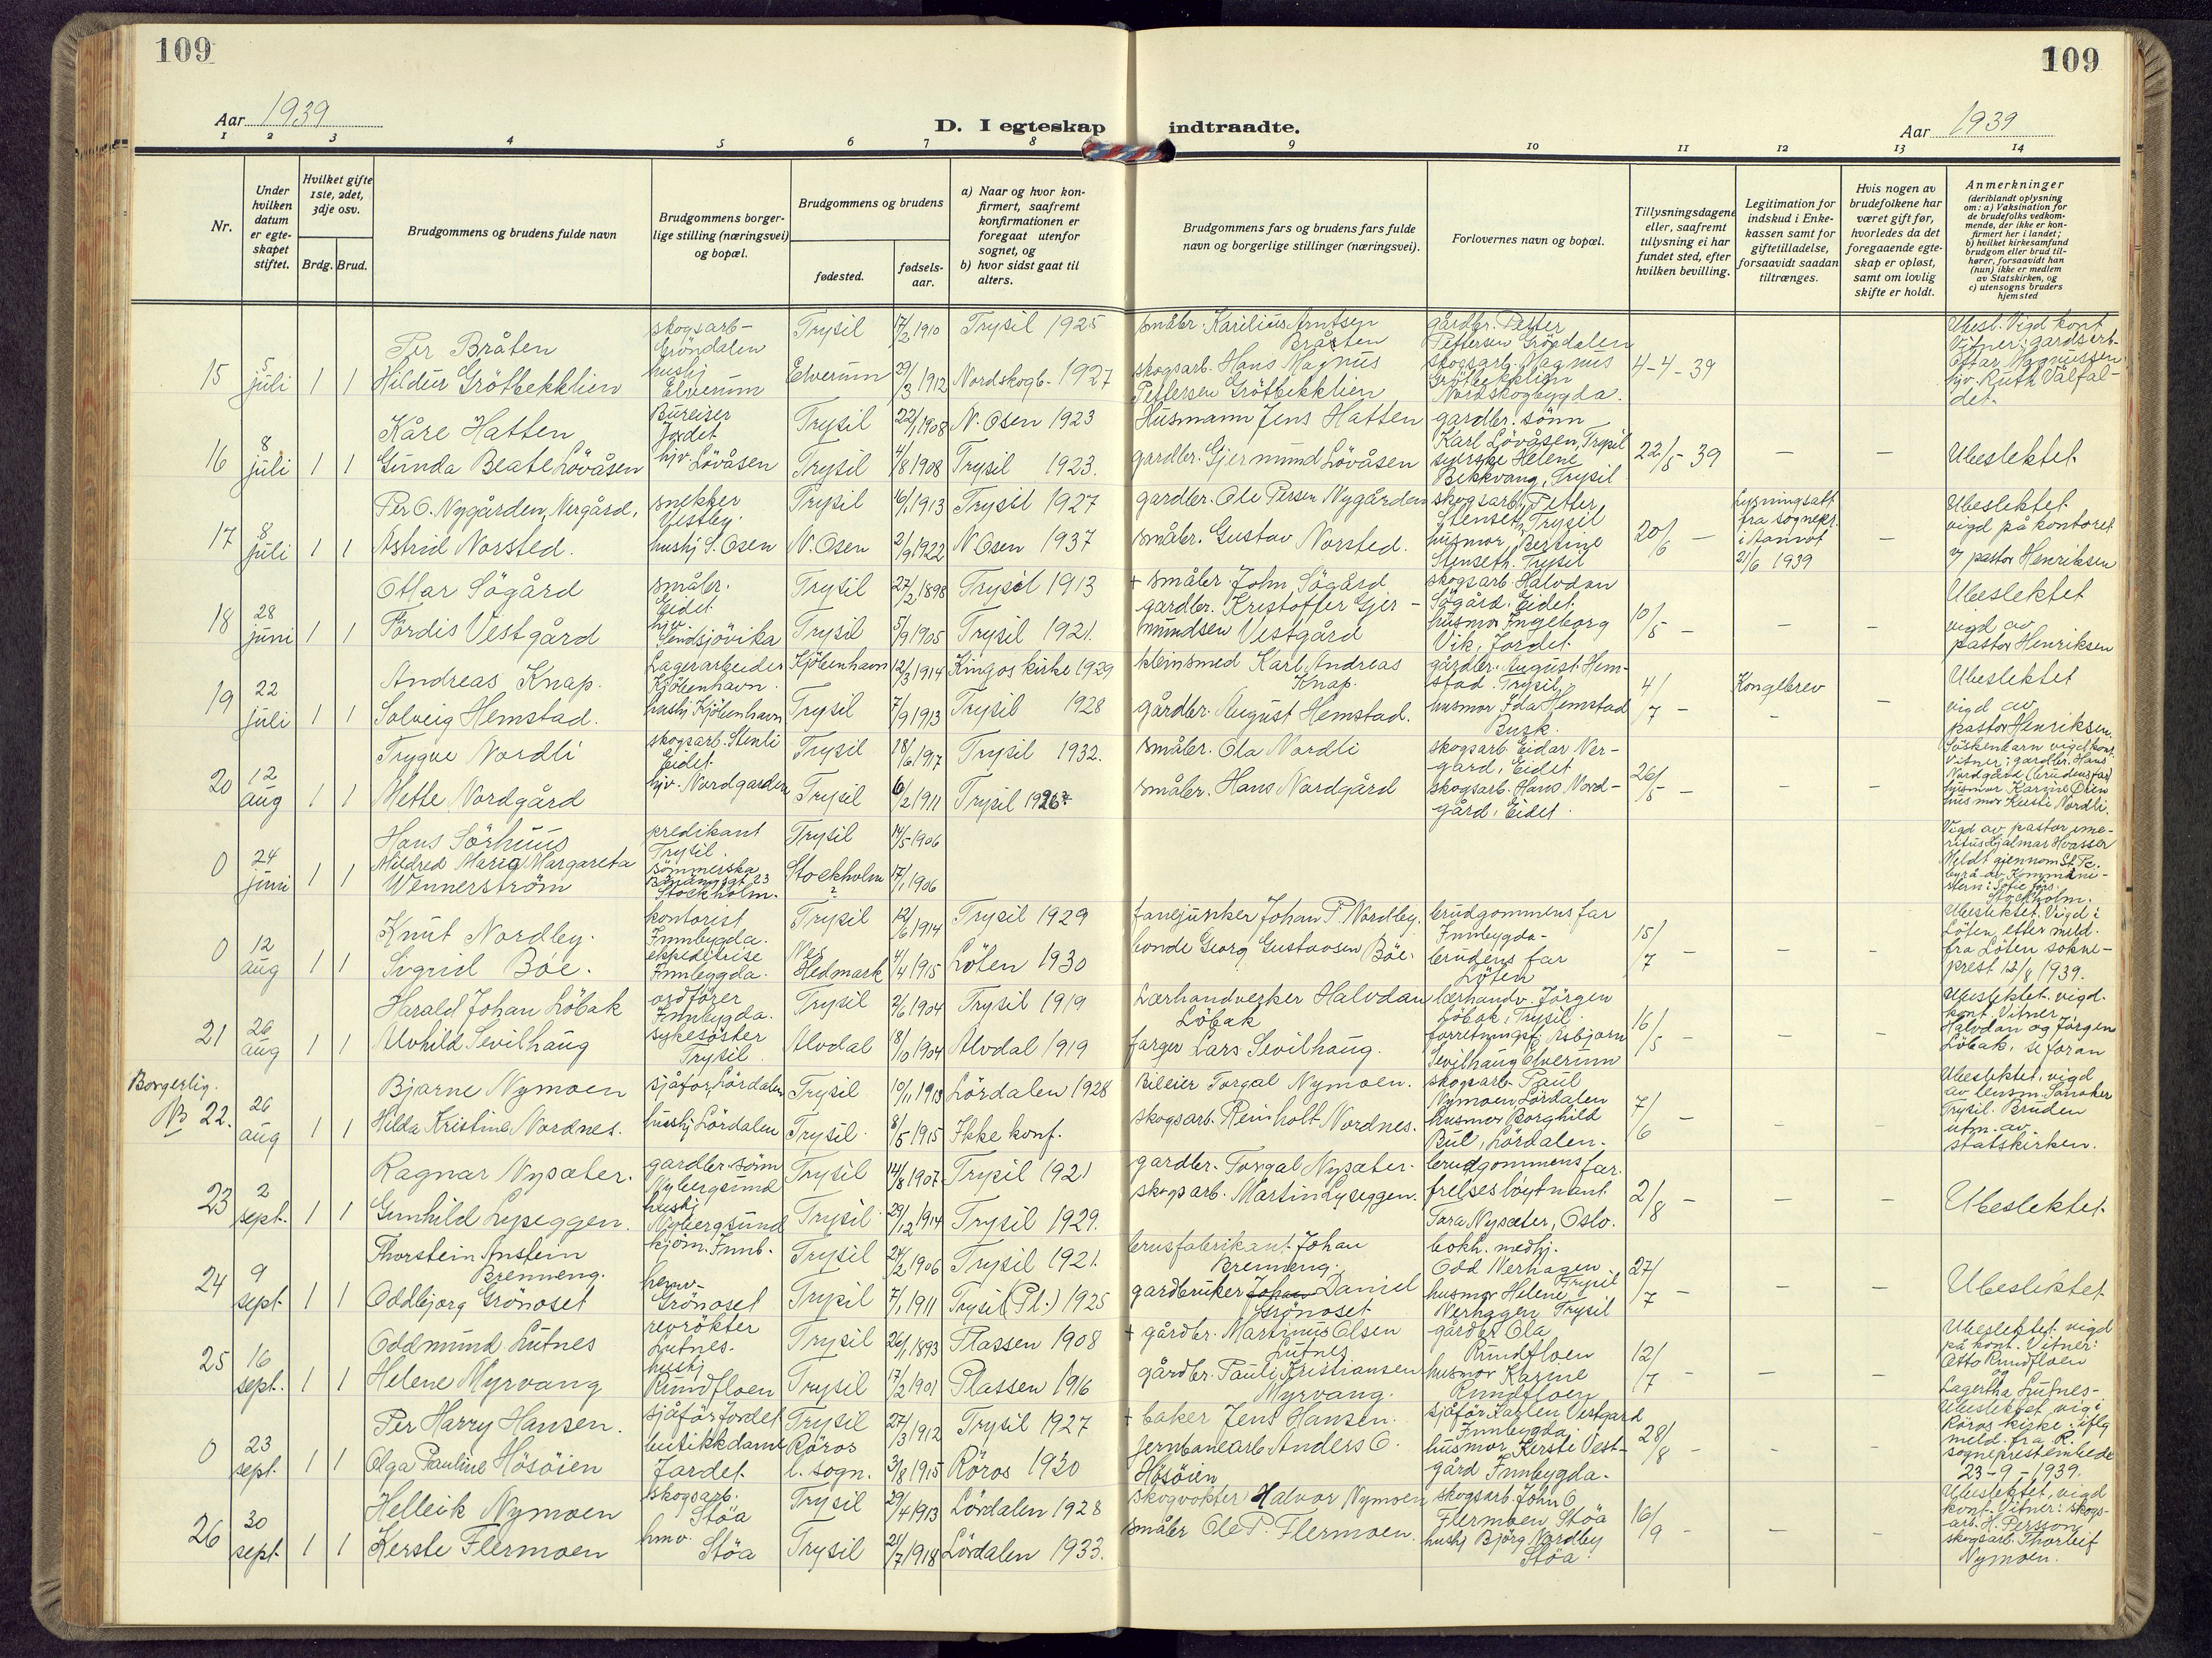 109
109
Aar 1939
D. I egteskap indtraadte.
Aar 1939
1 2 3 4 5 6 7 8 9 10 11 12 13 14
Nr.
Under hvilken datum er egteskapet stiftet.
Hvilket gifte 1ste, 2det, 3dje osv.
Brdg. Brud.
Brudgommens og brudens fulde navn
Brudgommens borgerlige stilling (næringsvei) og bopæl.
Brudgommens og brudens
fødested.
fødselsaar.
a) Naar og hvor konfirmert, saafremt konfirmationen er foregaat utenfor sognet, og
b) hvor sidst gaat til alters.
Brudgommens fars og brudens fars fulde navn og borgerlige stillinger (næringsvei).
Forlovernes navn og bopæl.
Tillysningsdagene eller, saafremt tillysning ei har fundet sted, efter hvilken bevilling.
Legitimation for indskud i Enkekassen samt for giftetilladelse, forsaavidt saadan tiltrænges.
Hvis nogen av brudefolkene har været gift før, hvorledes da det foregaaende egteskap er opløst, samt om lovlig skifte er holdt.
Anmerkninger (deriblandt oplysning om: a) Vaksination for de brudefolks vedkommende, der ikke er konfirmert her i landet; b) hvilket kirkesamfund brudgom eller brud tilhører, forsaavidt han (hun) ikke er medlem av Statskirken, og c) utensogns bruders hjemsted
15 5 juli 1 1
Per Bråten skogsarb- Gröndalen Trysil 17/2 1910 Trysil 1925 småbr. Karilius Arntsen Bråten gårdbr. Petter Pettersen Gröndalen
Hildur Grötbekklien hushj Elverum Elverum 29/3 1912 Nordskogb- 1927 skogsarb. Hans Magnus Pettersen Grötbekklien skogsarb. Magnus Grötbekklien Nordskogbygda. 4-4-39
Ubesl. Vigd kont Vitner: gardsarb- Ottar Magnussen hjv. Ruth Välfaldet.
16 8 juli 1 1
Kåre Hatten Bureiser Jordet Trysil 22/1 1908 N. Osen 1923 Husmann Jens Hatten gardbr. sönn Karl Lövåsen, Trysil
Gunda Beate Lövåsen hjv. Lövåsen Trysil 4/8 1908 Trysil 1923. gardbr. Gjermund Lövåsen syerske Helene Bekkvang, Trysil 22/5 39 - - Ubeslektet
17 8 juli 1 1
Per O. Nygården, Nergård, snekker Vestby. Trysil 16/1 1913 Trysil 1927 gardbr. Ole Persen Nygården skogsarb. Petter Stenseth, Trysil
Astrid Norsted. hushj S. Osen N. Osen 2/9 1922 N Osen 1937 småbr. Gustav Norsted. husmor Bertine Stenseth. Trysil 20/6 - Lysningsatt fra sognepr. i Aamot 21/6 1939 -
Ubeslektet vigd på kontoret v/ pastor Henriksen
18 28 juni 1 1
Ottar Sögård småbr. Eidet Trysil 27/2 1898 Trysil 1913 + småbr. John Sögård skogsarb. Halvdan Sögård. Eidet.
Tordis Vestgård hjv. Sendsjövika Trysil 5/9 1905 Trysil 1921. gardbr. Kristoffer Gjermundsen Vestgård husmor Ingeborg Vik, Jordet. 10/5 - - -
Ubeslektet vigd av pastor Henriksen
19 22 juli 1 1
Andreas Knap. Lagerarbeider Kjöbenhavn. Kjöbenhavn 12/3 1914 Kingos kirke 1929 kleinsmed Karl Andreas Knap. gårdbr. August Hemstad. Trysil,
Solveig Hemstad. hushj Kjöbenhavn Trysil 7/9 1913 Trysil 1928 gårdbr. August Hemstad. husmor Ida Hemstad Busk. 4/7 - Kongebrev - -
Ubeslektet vigd av pastor Henriksen.
20 12 aug 1 1
Trygve Nordli skogsarb. Stenli Eidet Trysil 18/6 1917 Trysil 1932. småbr. Ola Nordli skogsarb Eidar Nergard, Eidet
Mette Nordgård hjv. Nordgarden Trysil 6/2 1911 Trysil 1926 småbr. Hans Nordgård skogsarb. Hans Nordgård, Eidet. 26/5 - - -
Söskenbarn vigd kont Vitner: gardbr. Hans Nordgård (brudens far) husmor Karine Olsen husmor Kersti Nordli.
0 24 juni 1 1
Hans Sörhuus predikant Trysil. Trysil 14/5 1906
Mildred Maria Margareta Wennerström sömmerska Stockholm. Stockholm 17/1 1906
Vigd av pastor emeritus Hjalmar Hvasser Meldt gjennom St. Pe. byrå av Komministern i Sofie förs. Stockholm.
0 12 aug 1 1
Knut Nordby. kontorist Innbygda. Trysil 12/6 1914 Trysil 1929 fanejunker Johan P. Nordby. brudgommens far Innbygda-
Sigrid Böe. ekspeditrise Innbygda. Nes Hedmark 4/4 1915 Löten 1930 bonde Georg Gustavsen Böe. brudens far Löten 15/7 - - -
Ubeslektet. Vigd i Löten, efter meld. fra Löten sokneprest 12/8 1939.
21 26 aug 1 1
Harald Johan Löbak ordförer Innbygda. Trysil 2/6 1904 Trysil 1919 Lærhandverker Halvdan Löbak lærhandv. Jörgen Löbak, Trysil.
Alvhild Sevilhaug sykesöster Trysil. Alvdal 18/10 1904 Alvdal 1919 farger Lars Sevilhaug. forretningsf. Asbjørn Sevilhaug Elverum 16/5 - - -
Ubeslektet. vigd. kont. Vitner, Halvdan og Jörgen Löbak, se foran
Borgerlig. № 22. 26 aug 1 1
Bjarne Nymoen sjåfor, Lördalen Trysil 10/11 1913 Lördalen 1928 Bileier Torgal Nymoen. skogsarb- Paul Nymoen Lördalen
Hilda Kristine Nordnes. hushj Lördalen Trysil. 8/5 1915 Ikke konf. skogsarb. Reinholt Nordnes. husmor Borghild Bul, Lördalen. 7/6 - - -
Ubeslektet, vigd av lensm. Trysil. Bruden utm. av statskirken.
23 2 sept. 1 1
Ragnar Nysæter. gardbr. sönn Nybergsund Trysil 14/8 1907 Trysil 1921 gardbr. Torgal Nysæter. brudgommens far.
Gunhild Lyseggen. hushj Nybergsund Trysil 29/12 1914 Trysil 1929. skogsarb. Martin Lyseggen. frelseslöytnant Tara Nysæter, Oslo. 2/8 - - - Ubeslektet.
24 9 sept. 1 1
Thorstein Anstein Brenneng. kjöm. Innb. Trysil 24/2 1906 Trysil 1921. brusfabrikant Johan Brenneng. bokh. medhj. Odd Nerhagen. Trysil
Oddbjørg Grönoset hemv- Grönoset Trysil 7/1 1911 Trysil (Pl.) 1925 gardbruker Johan Daniel Grönoset husmor Helene Nerhagen Trysil 27/7 - - - Ubeslektet
25 16 sept. 1 1
Oddmund Lutnes revrökter Lutnes. Trysil 26/1 1893 Plassen 1908 + gårdbr. Martinus Olsen Lutnes gårdbr Ola Rundfloen
Helene Myrvang hushj Rundfloen Trysil 17/2 1901 Plassen 1916 gårdbr. Pauli Kristiansen Myrvang. husmor Karine Rundfloen 12/7 - - -
Ubeslektet. vigd på kont. Vitner: Otto Rundfloen og Lagertha Lutnes-
0 23 sept. 1 1
Per Harry Hansen. sjåför Jordet Trysil 27/3 1912 Trysil 1927 + baker Jens Hansen. sjåför Karsten Vestgard Innbygda.
Olga Pauline Hösöien butikkdame Jordet. Röros l. sogn. 3/8 1915 Röros 1930 Jernbanearb Anders O. Hösöien husmor Kerste Vestgård Innbygda. 28/8 - - -
Ubeslektet vig i Röros kirke iflg meld. fra R. sogneprestembede 23-9-1939.
26 30 sept. 1 1
Helleik Nymoen skogsarb. Stöa Trysil 29/4 1913 Lördalen 1928 skogvokter Halvor Nymoen skogsarb. John O. Flermoen Stöa
Kerste Flermoen hmv. Stöa Trysil 21/7 1918 Lördalen 1933. småbr Ole P. Flermoen. hushj Björg Nordby Stöa 16/9 - - -
Ubeslektet, vigd kont. Vitner: skogsarb. H. Persson, skogsarb. Thorleif Nymoen.